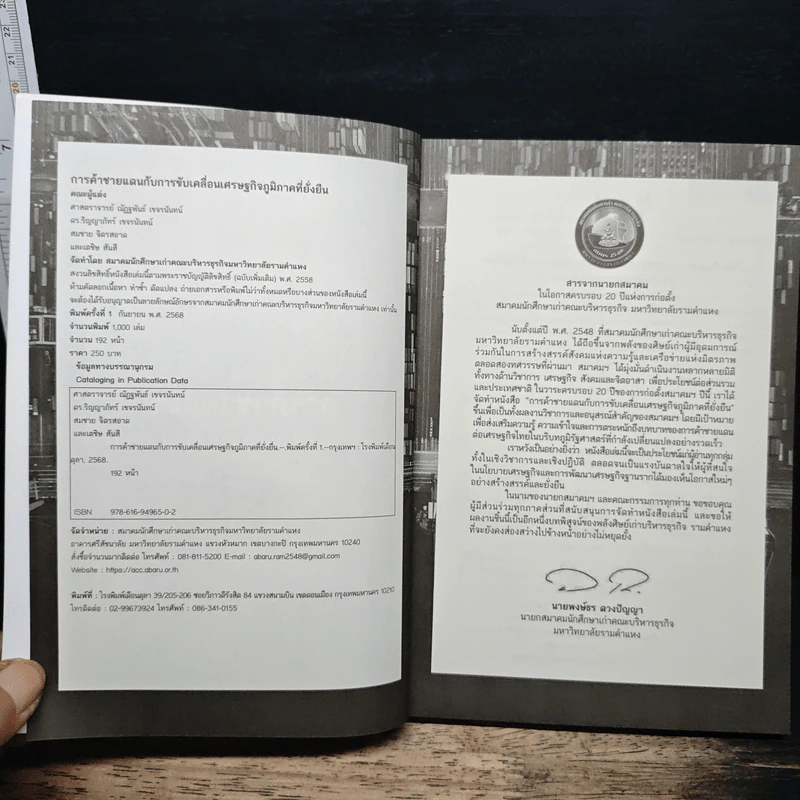 การค้าชายแดนกับการขับเคลื่อนเศรษฐกิจภูมิภาคที่ยั่งยืน
คณะผู้แต่ง
ศาสตราจารย์ ณัฏฐพันธ์ เขจรนันทน์
ดร.ริญญาภัทร์ เขจรนันทน์
สมชาย จิตรสอาด
และเตชิษ สันสี
จัดทำโดย สมาคมนักศึกษาเก่าคณะบริหารธุรกิจมหาวิทยาลัยรามคำแหง
สงวนลิขสิทธิ์หนังสือเล่มนี้ตามพระราชบัญญัติลิขสิทธิ์ (ฉบับเพิ่มเติม) พ.ศ. 2558
ห้ามคัดลอกเนื้อหา ทำซ้ำ ดัดแปลง ถ่ายเอกสารหรือพิมพ์ไม่ว่าทั้งหมดหรือบางส่วนของหนังสือเล่มนี้
จะต้องได้รับอนุญาตเป็นลายลักษณ์อักษรจากสมาคมนักศึกษาเก่าคณะบริหารธุรกิจมหาวิทยาลัยรามคำแหง เท่านั้น
พิมพ์ครั้งที่ 1 กันยายน พ.ศ. 2568
จำนวนพิมพ์ 1,000 เล่ม
จำนวน 192 หน้า
ราคา 250 บาท
ข้อมูลทางบรรณานุกรม
Cataloging in Publication Data
ศาสตราจารย์ ณัฏฐพันธ์ เขจรนันทน์
ดร.ริญญาภัทร์ เขจรนันทน์
สมชาย จิตรสอาด
และเตชิษ สันสี
การค้าชายแดนกับการขับเคลื่อนเศรษฐกิจภูมิภาคที่ยั่งยืน.--.พิมพ์ครั้งที่ 1.--กรุงเทพฯ : โรงพิมพ์เดือน
ตุลา, 2568.
192 หน้า
ISBN 978-616-94965-0-2
จัดจำหน่าย : สมาคมนักศึกษาเก่าคณะบริหารธุรกิจมหาวิทยาลัยรามคำแหง
อาคารศรีสัชนาลัย มหาวิทยาลัยรามคำแหง แขวงหัวหมาก เขตบางกะปิ กรุงเทพมหานคร 10240
สั่งซื้อจำนวนมากติดต่อ โทรศัพท์ : 081-811-5200 E-mail : abaru.ram2548@gmail.com
Website : https://acc.abaru.or.th
พิมพ์ที่ : โรงพิมพ์เดือนตุลา 39/205-206 ซอยวิภาวดีรังสิต 84 แขวงสนามบิน เขตดอนเมือง กรุงเทพมหานคร 10210
โทรติดต่อ : 02-99673924 โทรศัพท์ : 086-341-0155
สารจากนายกสมาคม
ในโอกาสครบรอบ 20 ปีแห่งการก่อตั้ง
สมาคมนักศึกษาเก่าคณะบริหารธุรกิจ มหาวิทยาลัยรามคำแหง
นับตั้งแต่ปี พ.ศ. 2548 ที่สมาคมนักศึกษาเก่าคณะบริหารธุรกิจ
มหาวิทยาลัยรามคำแหง ได้ถือขึ้นจากพลังของศิษย์เก่าผู้มีอุดมการณ์
ร่วมกันในการสร้างสรรค์สังคมแห่งความรู้และเครือข่ายแห่งมิตรภาพ
ตลอดสองทศวรรษที่ผ่านมา สมาคมฯ ได้มุ่งมั่นดำเนินงานหลากหลายมิติ
ทั้งทางด้านวิชาการ เศรษฐกิจ สังคมและจิตอาสา เพื่อประโยชน์ต่อส่วนรวม
และประเทศชาติ ในวาระครบรอบ 20 ปีของการก่อตั้งสมาคมฯ ปีนี้ เราได้
จัดทำหนังสือ "การค้าชายแดนกับการขับเคลื่อนเศรษฐกิจภูมิภาคที่ยั่งยืน"
ขึ้นเพื่อเป็นทั้งผลงานวิชาการและอนุสรณ์สำคัญของสมาคมฯ โดยมีเป้าหมาย
เพื่อส่งเสริมความรู้ ความเข้าใจและการตระหนักถึงบทบาทของการค้าชายแดน
ต่อเศรษฐกิจไทยในบริบทภูมิรัฐศาสตร์ที่กำลังเปลี่ยนแปลงอย่างรวดเร็ว
เราหวังเป็นอย่างยิ่งว่า หนังสือเล่มนี้จะเป็นประโยชน์แก่ผู้อ่านทุกกลุ่ม
ทั้งในเชิงวิชาการและเชิงปฏิบัติ ตลอดจนเป็นแรงบันดาลใจให้ผู้ที่สนใจ
ในนโยบายเศรษฐกิจและการพัฒนาเศรษฐกิจฐานรากได้มองเห็นโอกาสใหม่ๆ
อย่างสร้างสรรค์และยั่งยืน
ในนามของนายกสมาคมฯ และคณะกรรมการทุกท่าน ขอขอบคุณ
ผู้มีส่วนร่วมทุกภาคส่วนที่สนับสนุนการจัดทำหนังสือเล่มนี้ และขอให้
ผลงานชิ้นนี้เป็นอีกหนึ่งบทพิสูจน์ของพลังศิษย์เก่าบริหารธุรกิจ รามคำแหง
ที่จะยังคงส่องสว่างไปข้างหน้าอย่างไม่หยุดยั้ง
นายพงษ์ธร ดวงปัญญา
นายกสมาคมนักศึกษาเก่าคณะบริหารธุรกิจ
มหาวิทยาลัยรามคำแหง